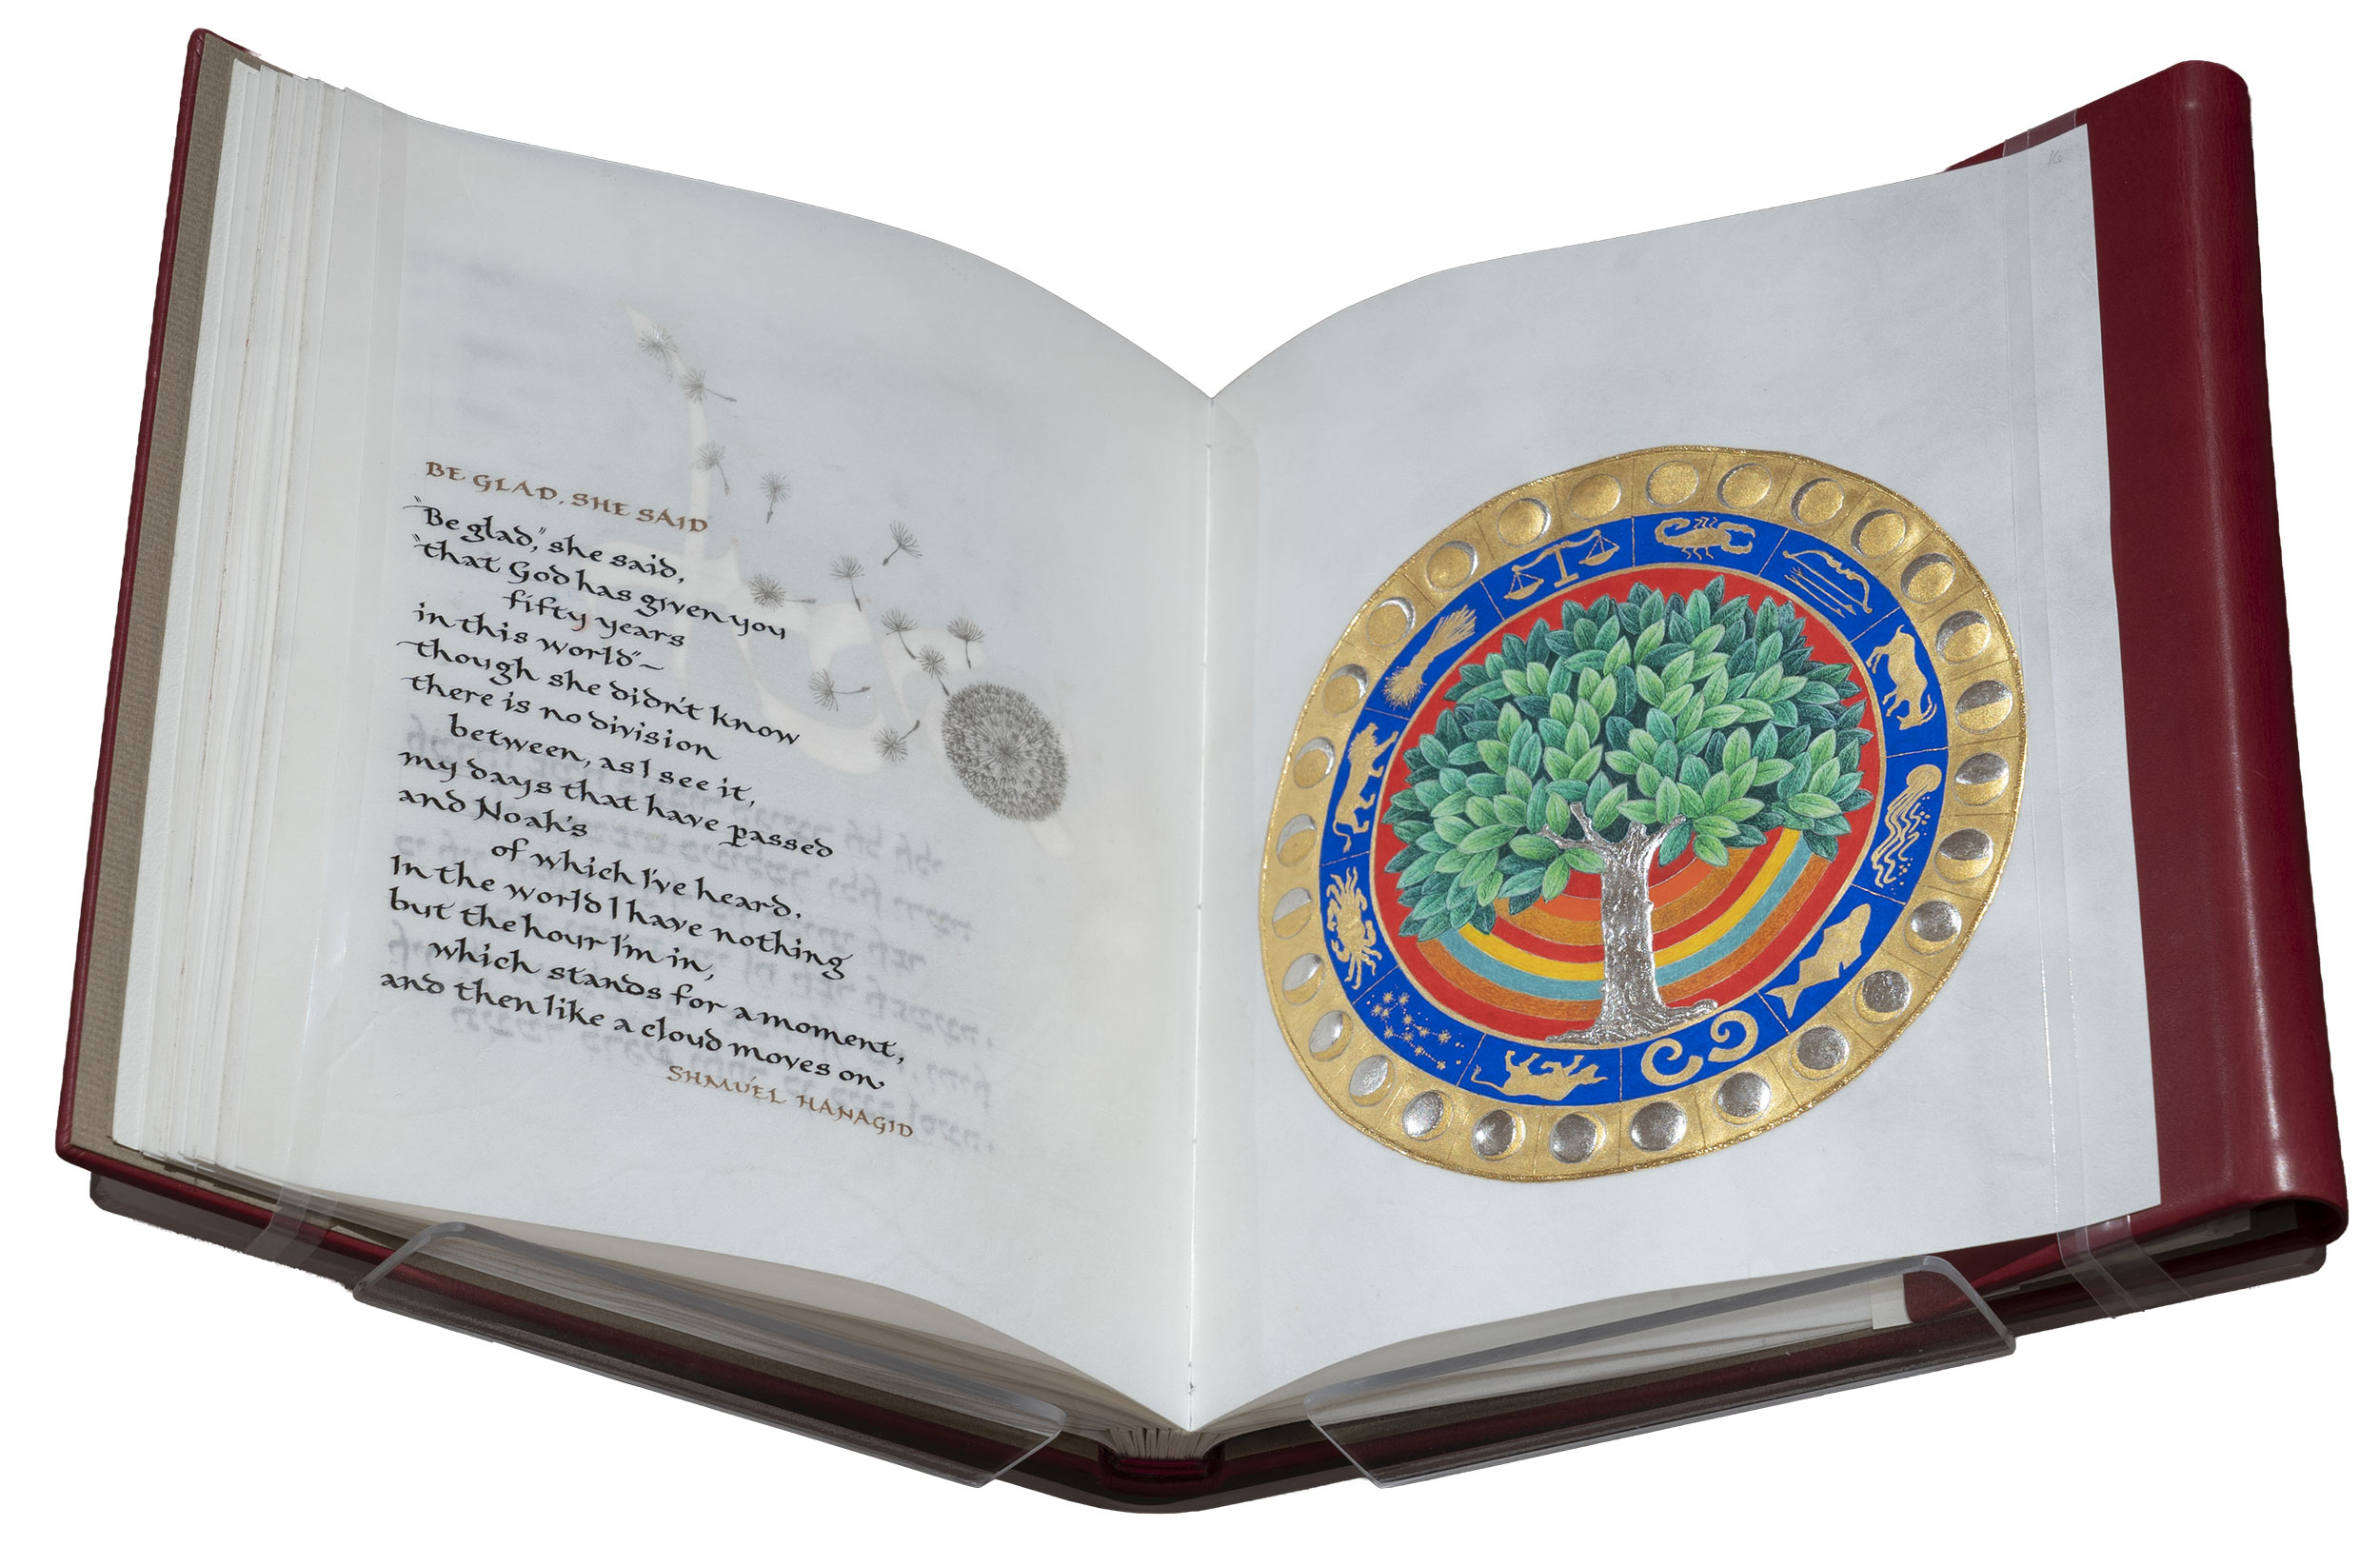 BE GLAD, SHE SAID
"Be glad," she said,
"that God has given you
fifty years
in this world"—
though she didn't know
there is no division
between, as I see it,
my days that have passed
and Noah's
of which I've heard.
In the world I have nothing
but the hour I'm in,
which stands for a moment,
and then like a cloud moves on.
SHMUEL HANAGID
16